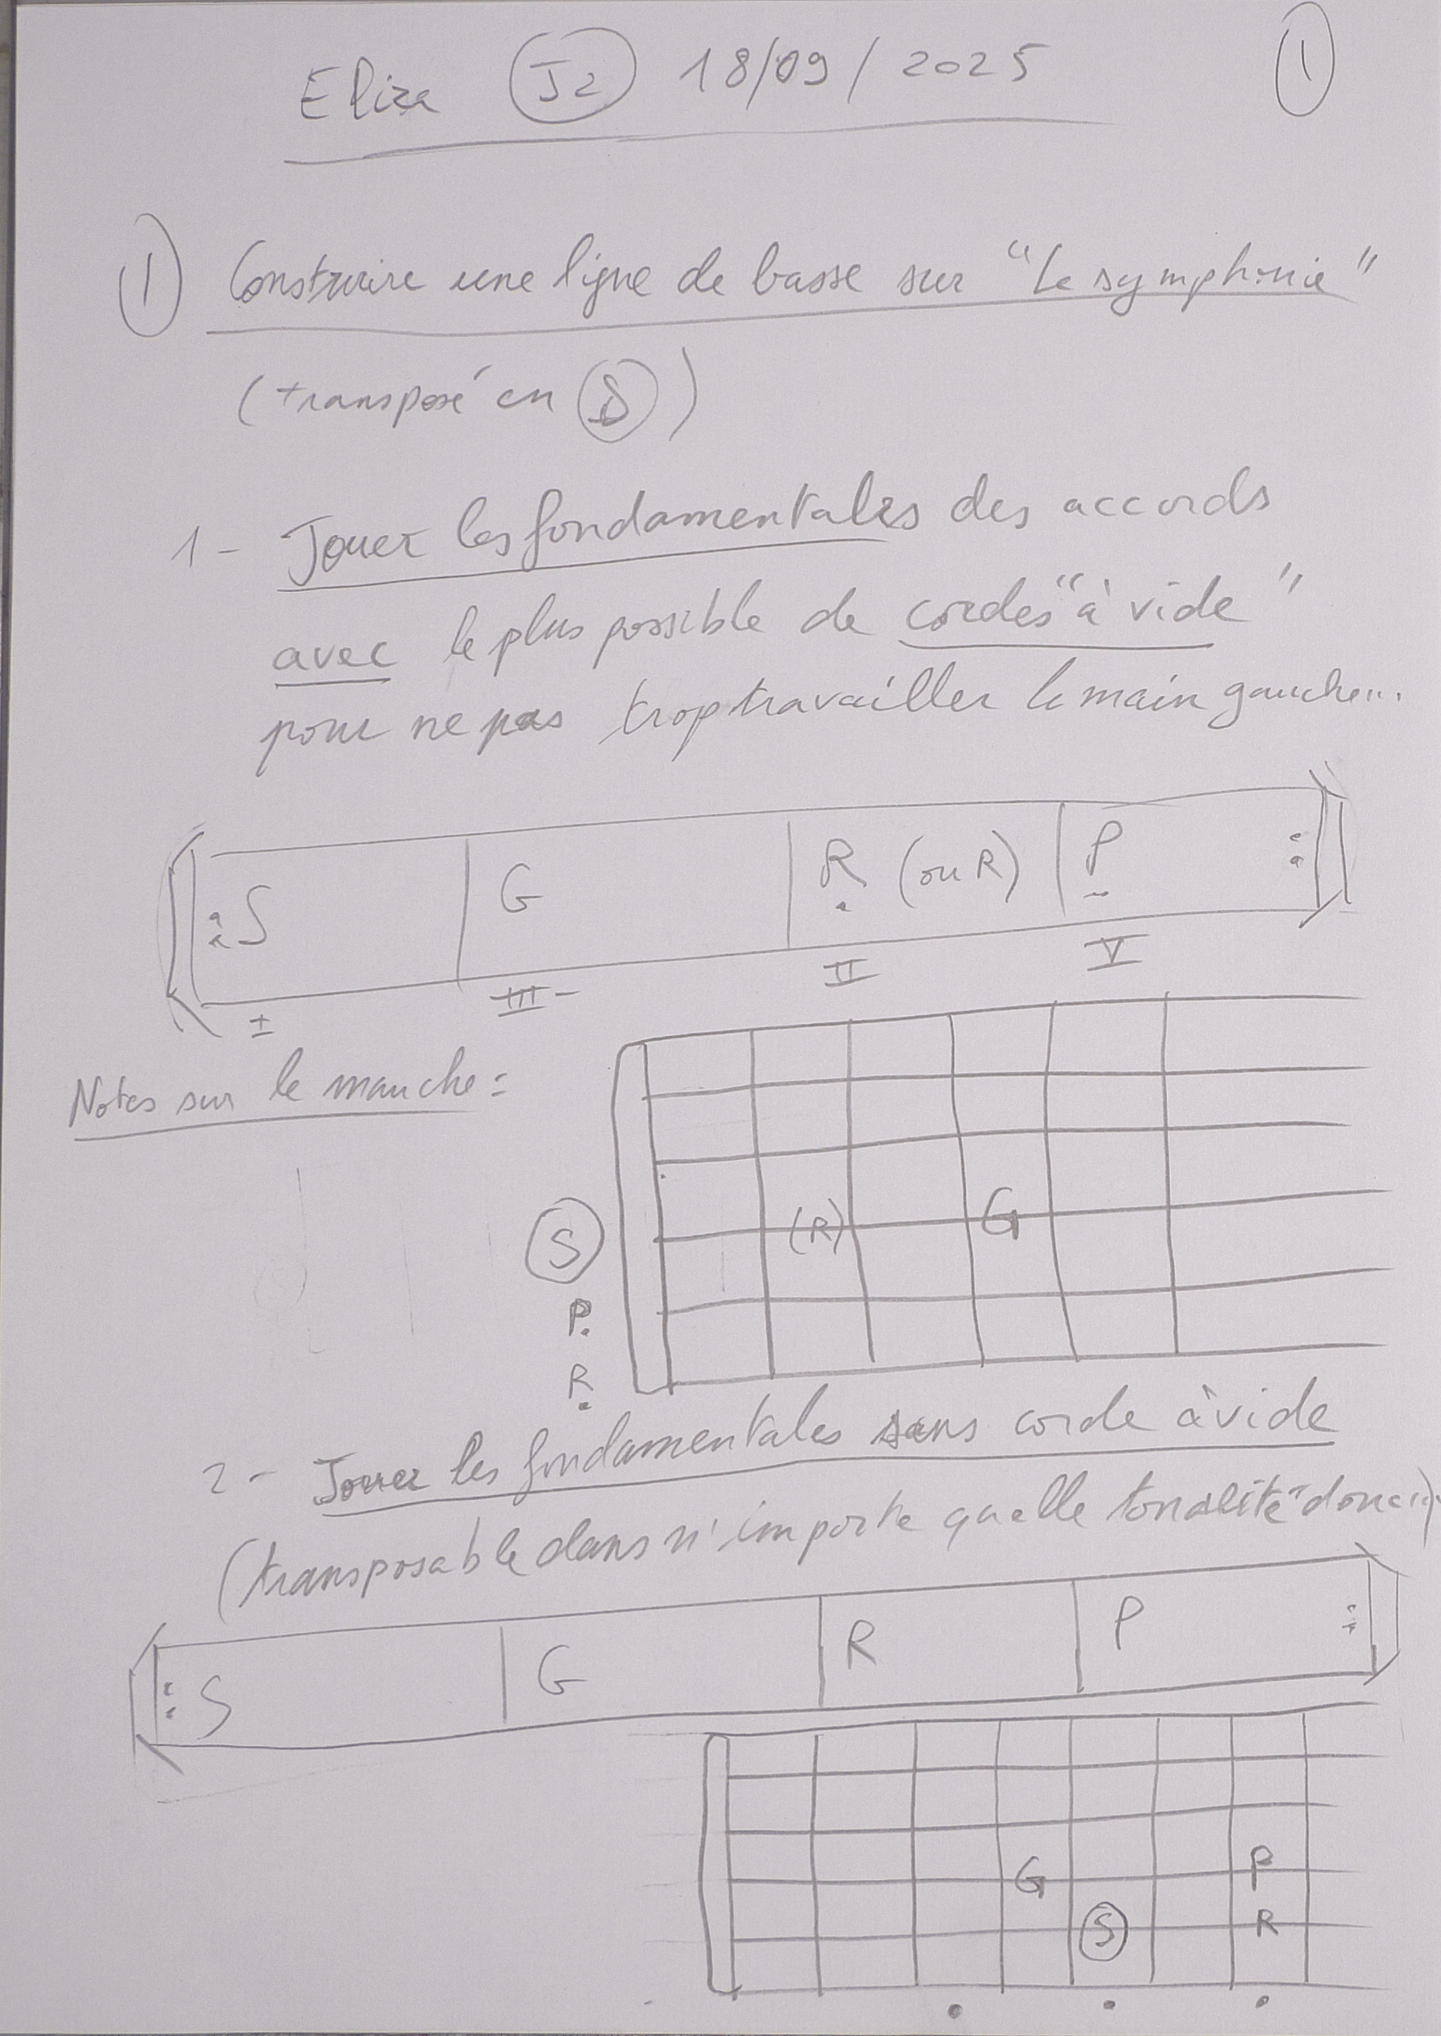 Elisa J2 18/09/2025 1
1 Construire une ligne de basse sur "Le symphonie"
(transposé en S)
1 - Jouer les fondamentales des accords
avec le plus possible de cordes "à vide"
pour ne pas trop travailler le main gauche...
S G R (ou R) P
I III- II V
Notes sur le manche :
(R) G
S
P
R
2 - Jouer les fondamentales sans corde à vide
(transposable dans n'importe quelle tonalité donc...)
S G R P
G P
S R